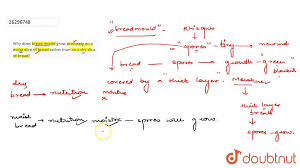 26296748
Why does bread mould grow profusely on a
moist slice of bread rather than on a dry slice
of bread?
"bread mould" - Rhizopus
"spores" - tiny
"bread" → spores → growth - green
covered by a thick layer. Moisture
dry
bread → nutrition
moisture
×
thick layer
breaks
↓
spores - grow.
moist
bread → nutrition moisture - spores will grow.
doubtnut